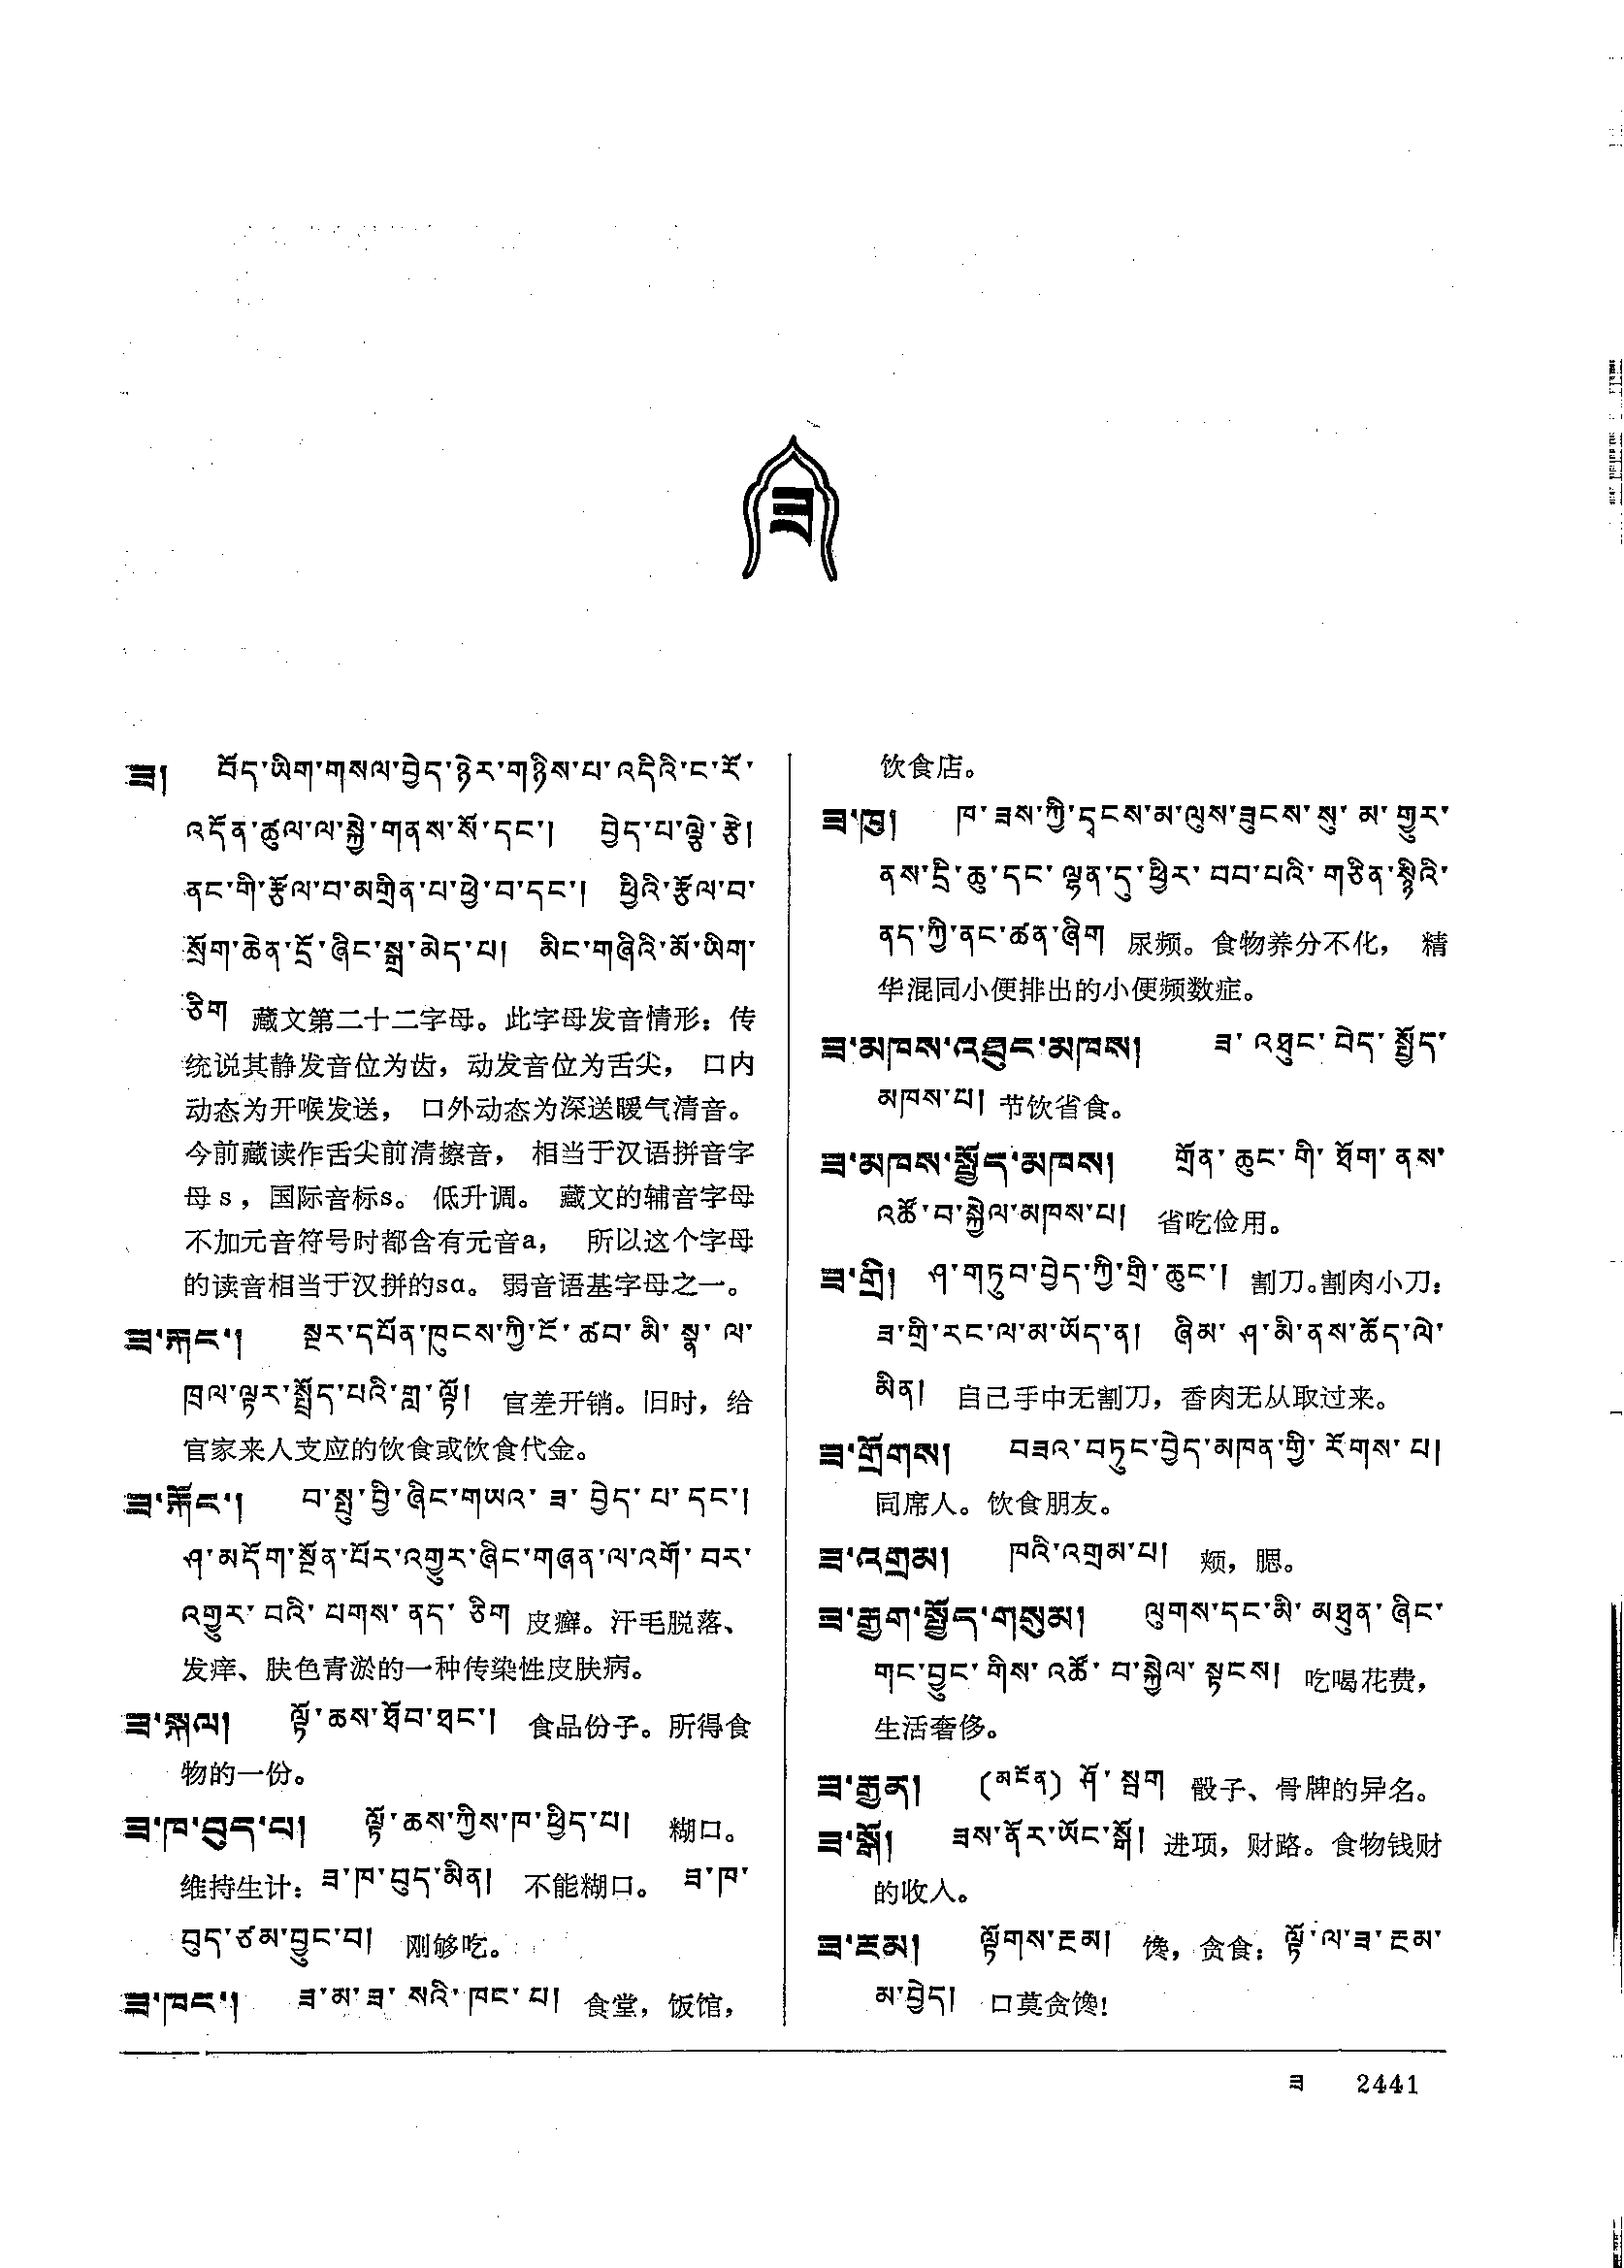 ཟ
ཟ།  བོད་ཡིག་གསལ་བྱེད་ཉེར་གཉིས་པ་འདིའི་ང་རོ་
འདོན་ཚུལ་ལ་སྐྱེ་གནས་སོ་དང་།  བྱེད་པ་ལྕེ་རྩེ།
ནང་གི་རྩོལ་བ་མགྲིན་པ་ཕྱེ་བ་དང་།  ཕྱིའི་རྩོལ་བ་
སྲོག་ཆེན་དྲོ་ཞིང་སྒྲ་མེད་པ།  མིང་གཞིའི་མོ་ཡིག་
ཅིག 藏文第二十二字母。此字母发音情形：传
统说其静发音位为齿，动发音位为舌尖， 口内
动态为开喉发送， 口外动态为深送暖气清音。
今前藏读作舌尖前清擦音， 相当于汉语拼音字
母s，国际音标s。 低升调。 藏文的辅音字母
不加元音符号时都含有元音a， 所以这个字母
的读音相当于汉拼的sɑ。 弱音语基字母之一。
ཟ་རྐང་།  སྔར་དཔོན་ཁུངས་ཀྱི་ངོ་ཚབ་མི་སྣ་ལ་
ཁྲལ་ལྟར་སྤྲོད་པའི་གླ་ལྟོ། 官差开销。旧时，给
官家来人支应的饮食或饮食代金。
ཟ་རྐོང་།  བ་སྤུ་བྱི་ཞིང་གཡའ་ཟ་བྱེད་པ་དང་།
ཤ་མདོག་སྔོན་པོར་འགྱུར་ཞིང་གཞན་ལ་འགོ་བར་
འགྱུར་བའི་པགས་ནད་ཅིག 皮癣。汗毛脱落、
发痒、肤色青淤的一种传染性皮肤病。
ཟ་སྐལ།  ལྟོ་ཆས་ཐོབ་ཐང་། 食品份子。所得食
物的一份。
ཟ་ཁ་བུད་པ།  ལྟོ་ཆས་ཀྱིས་ཁ་ཕྱིད་པ། 糊口。
维持生计：ཟ་ཁ་བུད་མིན། 不能糊口。 ཟ་ཁ་
བུད་ཙམ་བྱུང་བ། 刚够吃。
ཟ་ཁང་།  ཟ་མ་ཟ་སའི་ཁང་པ། 食堂，饭馆，
饮食店。
ཟ་ཁུ།  ཁ་ཟས་ཀྱི་དྭངས་མ་ལུས་ཟུངས་སུ་མ་གྱུར་
ནས་དྲི་ཆུ་དང་ལྷན་དུ་ཕྱིར་བབ་པའི་གཅིན་སྙིའི་
ནད་ཀྱི་ནང་ཚན་ཞིག 尿频。食物养分不化， 精
华混同小便排出的小便频数症。
ཟ་མཁས་འཐུང་མཁས།  ཟ་འཐུང་བེད་སྤྱོད་
མཁས་པ། 节饮省食。
ཟ་མཁས་སྤྱོད་མཁས།  གྲོན་ཆུང་གི་ཐོག་ནས་
འཚོ་བ་སྐྱེལ་མཁས་པ། 省吃俭用。
ཟ་གྲི།  ཤ་གཏུབ་བྱེད་ཀྱི་གྲི་ཆུང་། 割刀。割肉小刀：
ཟ་གྲི་རང་ལ་མ་ཡོད་ན།  ཞིམ་ཤ་མི་ནས་ཆོད་ལེ་
མིན། 自己手中无割刀，香肉无从取过来。
ཟ་གྲོགས།  བཟའ་བཏུང་བྱེད་མཁན་གྱི་རོགས་པ།
同席人。饮食朋友。
ཟ་འགྲམ།  ཁའི་འགྲམ་པ། 颊，腮。
ཟ་རྒྱག་སྤྱོད་གསུམ།  ལུགས་དང་མི་མཐུན་ཞིང་
གང་བྱུང་གིས་འཚོ་བ་སྐྱེལ་སྟངས། 吃喝花费，
生活奢侈。
ཟ་རྒྱན།  (མངོན) ཤོ་སྦག 骰子、骨牌的异名。
ཟ་སྒོ།  ཟས་ནོར་ཡོང་སྒོ། 进项，财路。食物钱财
的收入。
ཟ་ངམ།  ལྟོགས་ངམ། 馋，贪食：ལྟོ་ལ་ཟ་ངམ་
མ་བྱེད། 口莫贪馋!
ཟ  2441